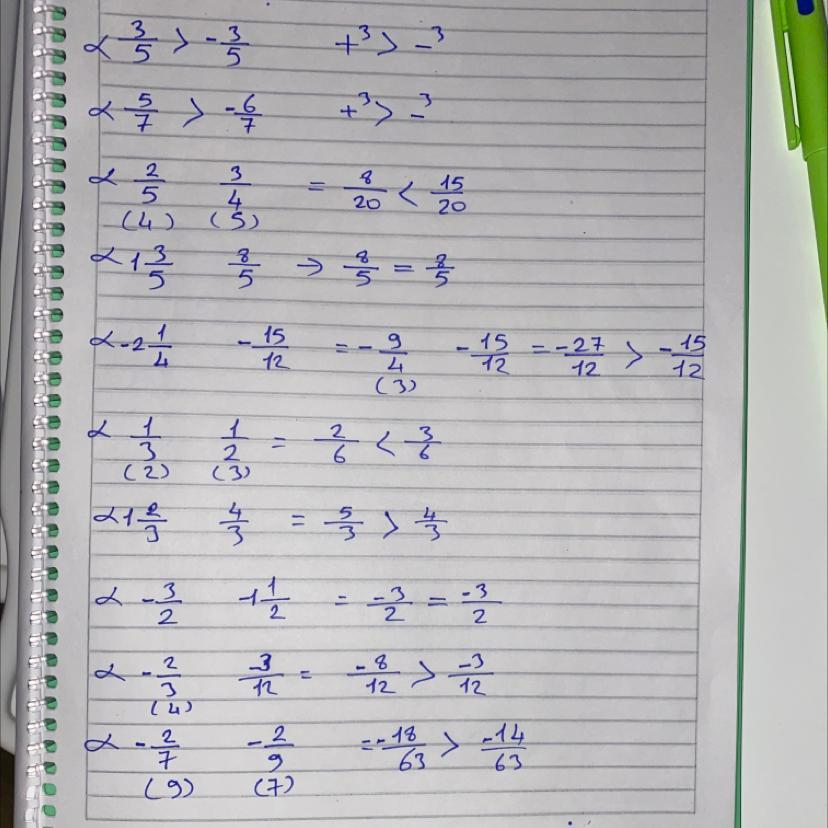 α 3/5 > -3/5 +3 > -3
α 5/7 > -6/7 +3 > -3
α 2/5 3/4 = 8/20 < 15/20
(4) (5)
α 1 3/5 8/5 → 8/5 = 8/5
α -2 1/4 -15/12 = -9/4 -15/12 = -27/12 > -15/12
(3)
α 1/3 1/2 = 2/6 < 3/6
(2) (3)
α 1 2/3 4/3 = 5/3 > 4/3
α -3/2 -1 1/2 = -3/2 = -3/2
α -2/3 -3/12 = -8/12 > -3/12
(4)
α -2/7 -2/9 = -18/63 > -14/63
(9) (7)